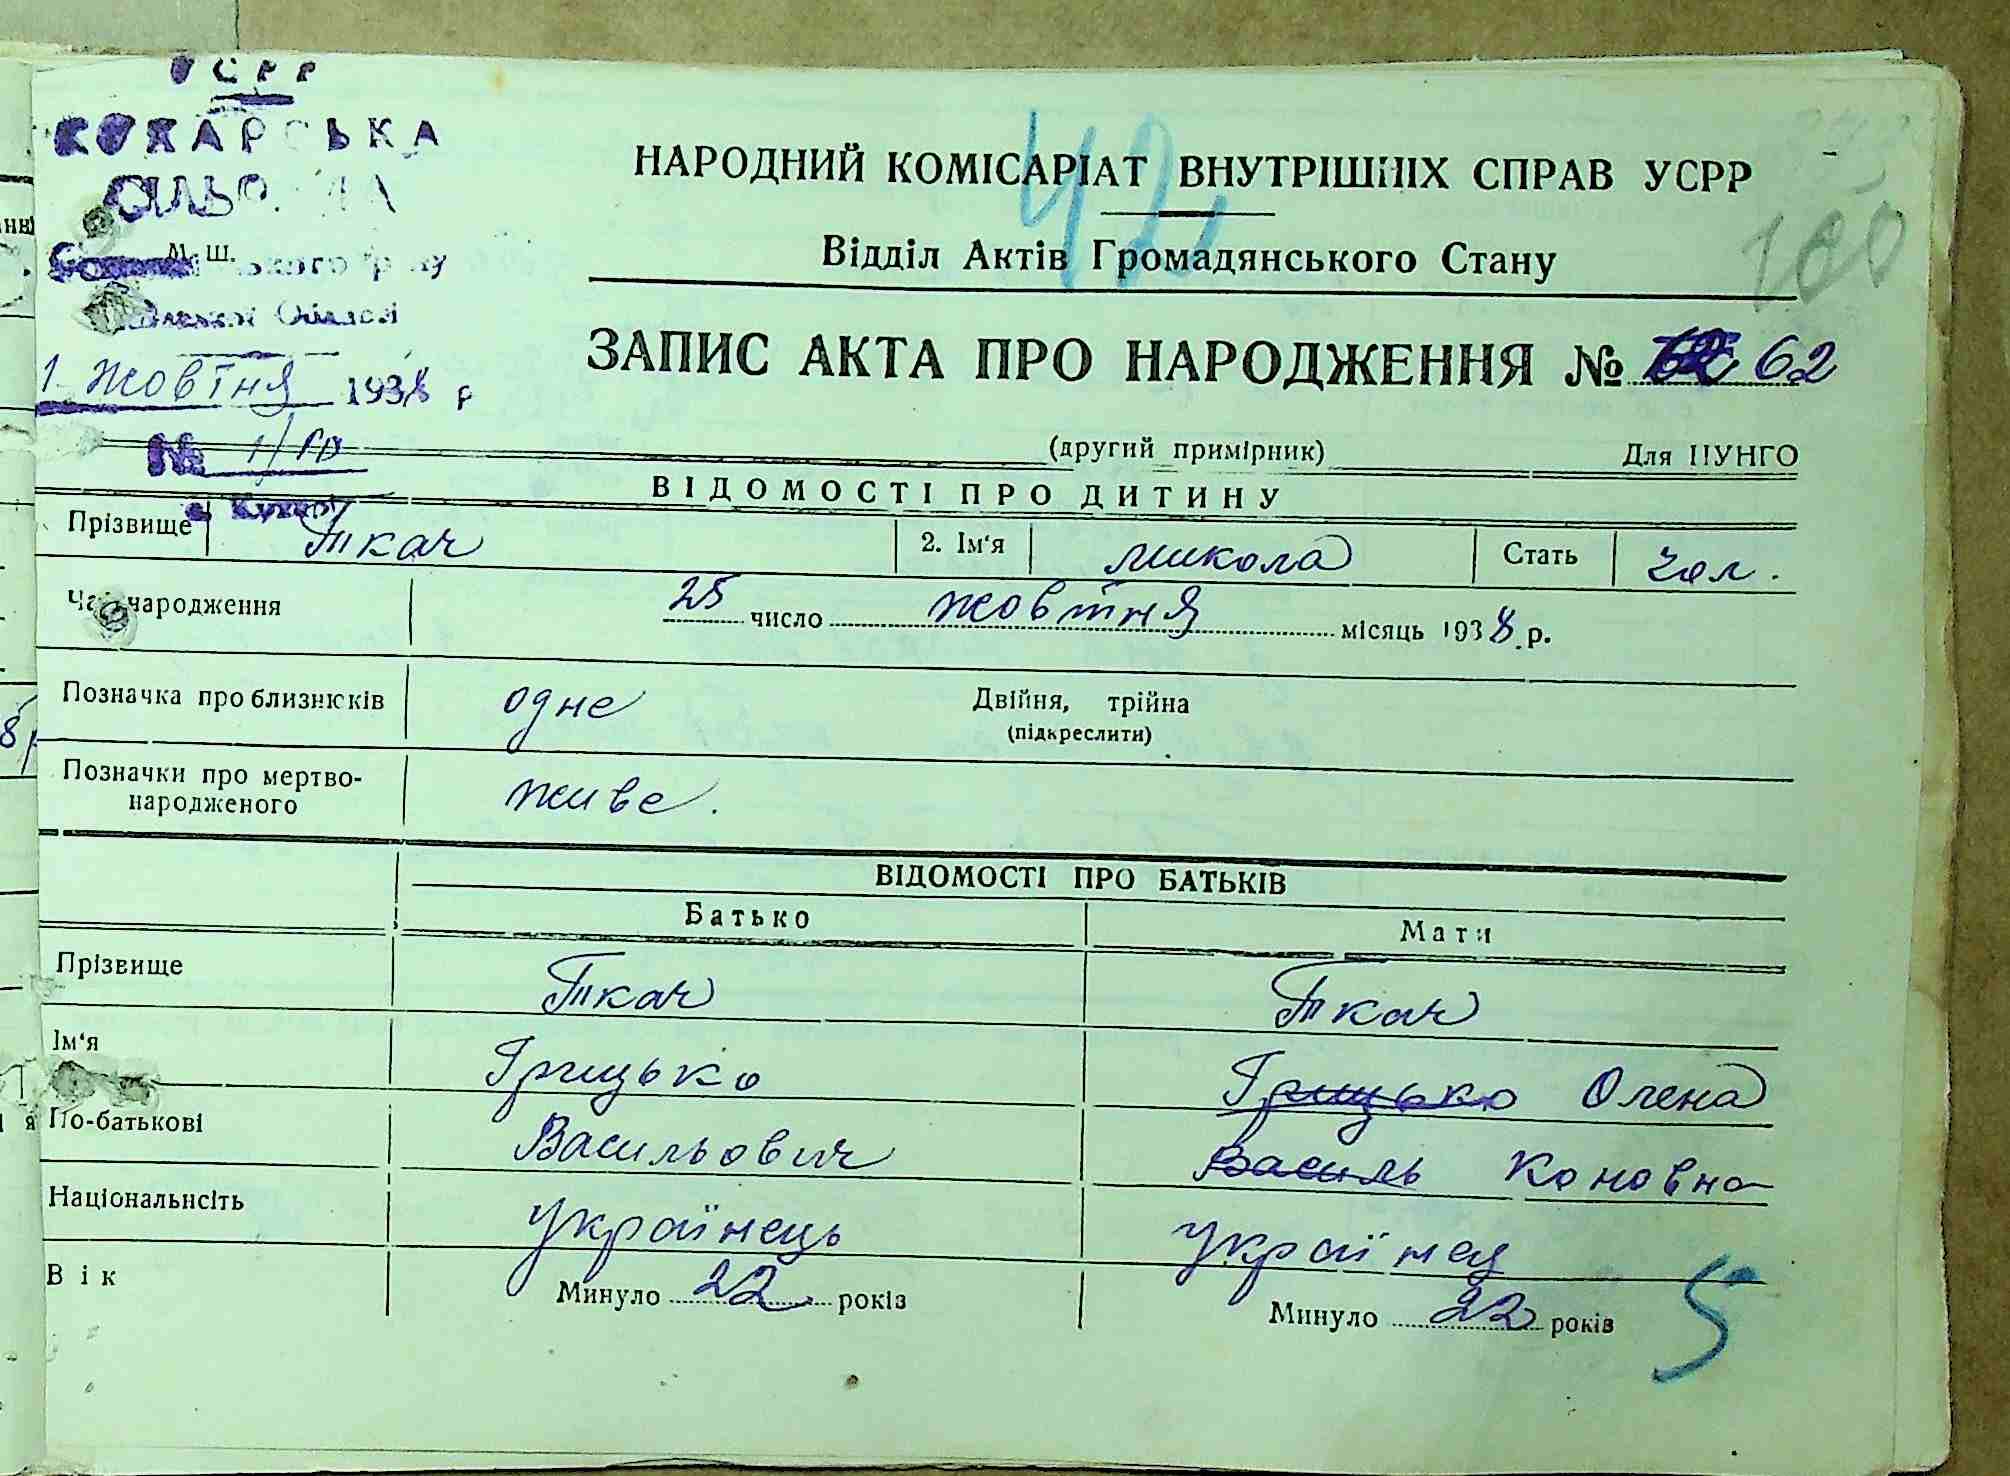 УСРР
КУХАРСЬКА
М. Ш.
1 жовтня 1938 р
№ 1/
42
100
НАРОДНИЙ КОМІСАРІАТ ВНУТРІШНІХ СПРАВ УСРР
Відділ Актів Громадянського Стану
ЗАПИС АКТА ПРО НАРОДЖЕННЯ № 62
(другий примірник) Для ЦУНГО
ВІДОМОСТІ ПРО ДИТИНУ
Прізвище Ткач 2. Ім'я Микола Стать чол.
Час народження 25 число жовтня місяць 1938 р.
Позначка про близнюків одне Двійня, трійна
(підкреслити)
Позначки про мертво-
народженого живе.
ВІДОМОСТІ ПРО БАТЬКІВ
Батько Мати
Прізвище Ткач Ткач
Ім'я Грицько Грицько Олена
По-батькові Васильович Василь Кононовна
Національність українець українец
Вік Минуло 22 років Минуло 22 років
5